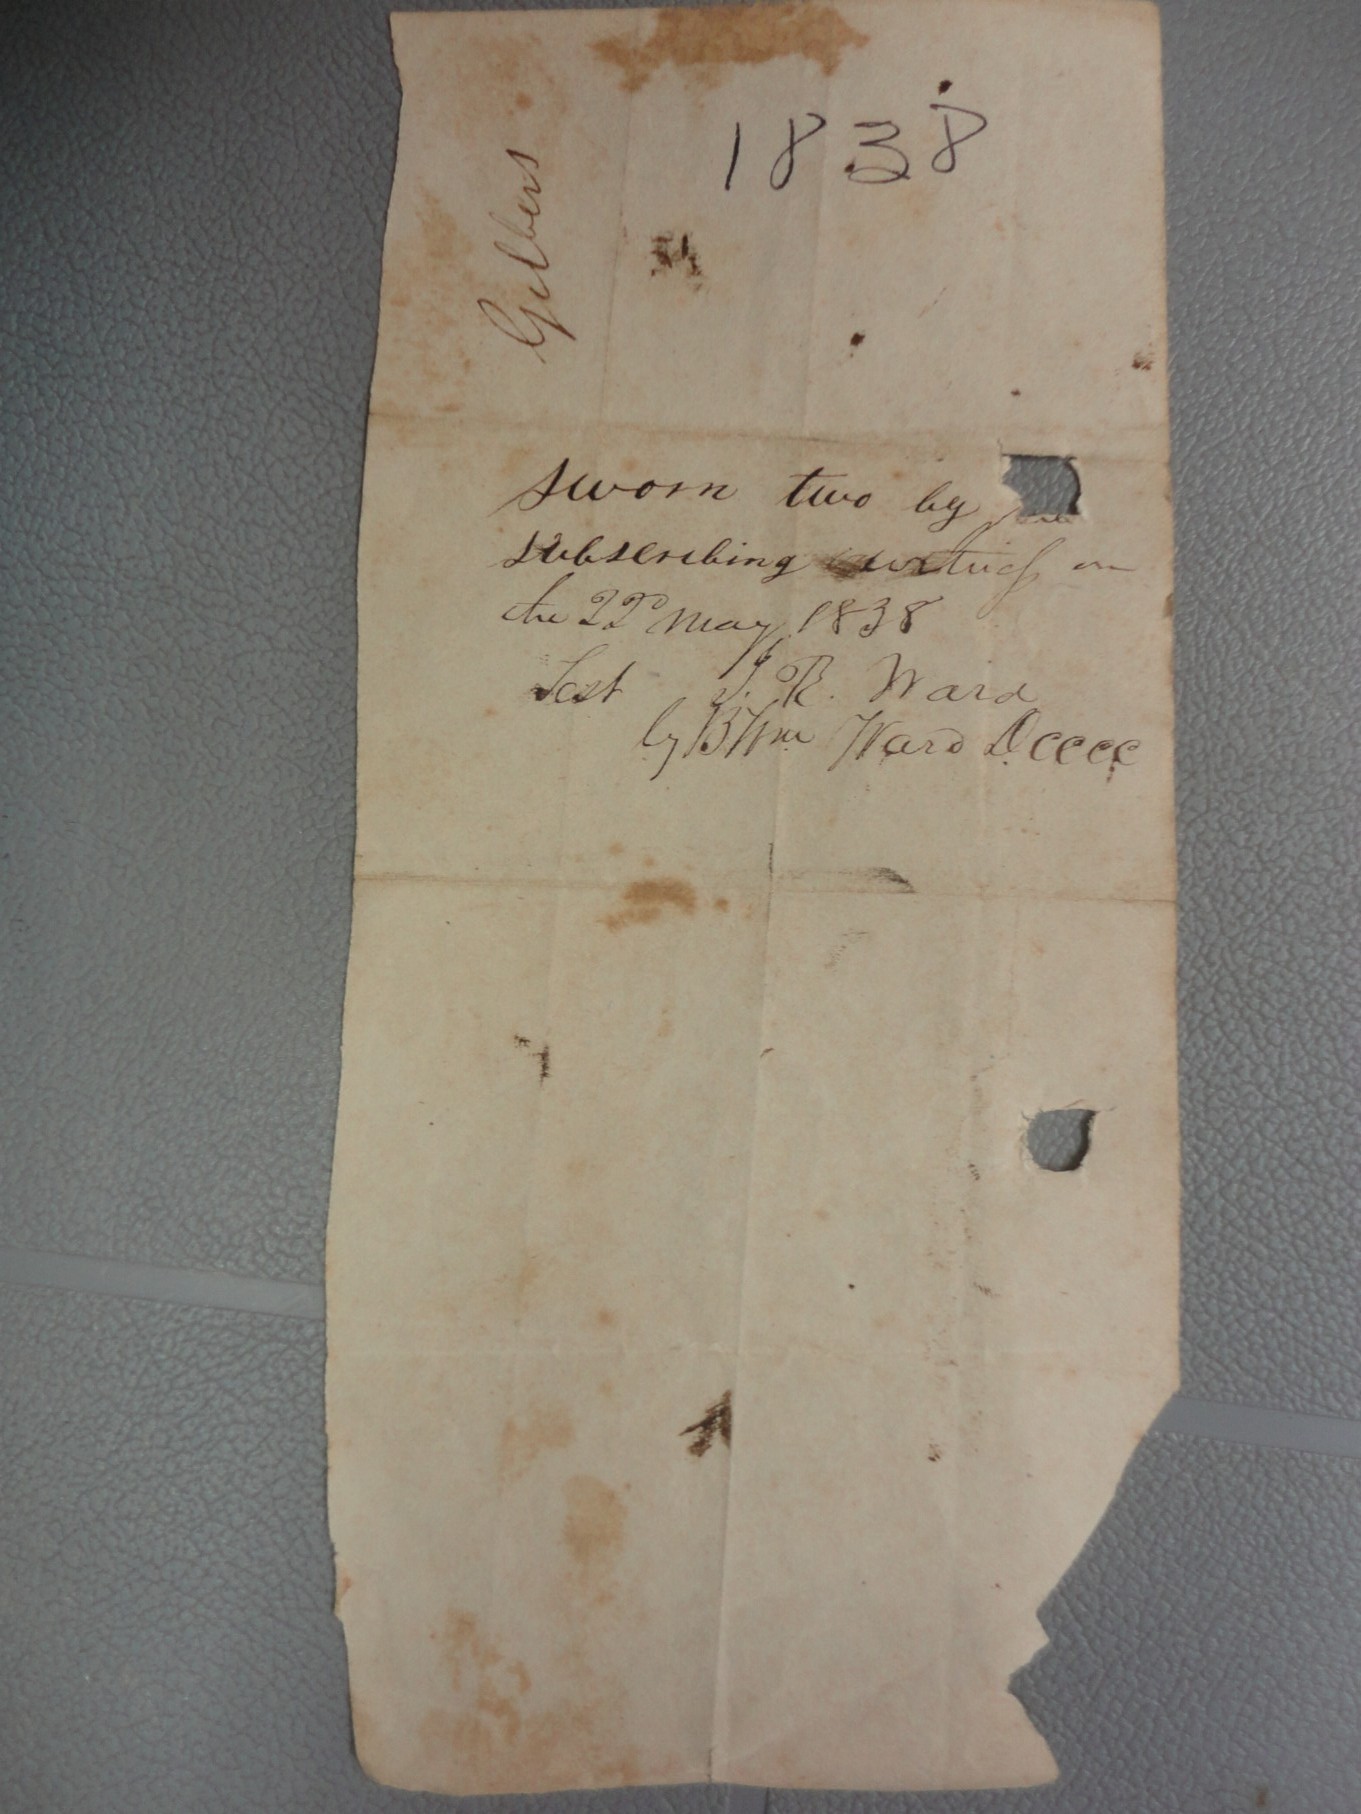 1838
Gilbers
sworn two by
subscribing witness on
the 22D May 1838
Test J. R. Ward
by B Wm Ward D cccc